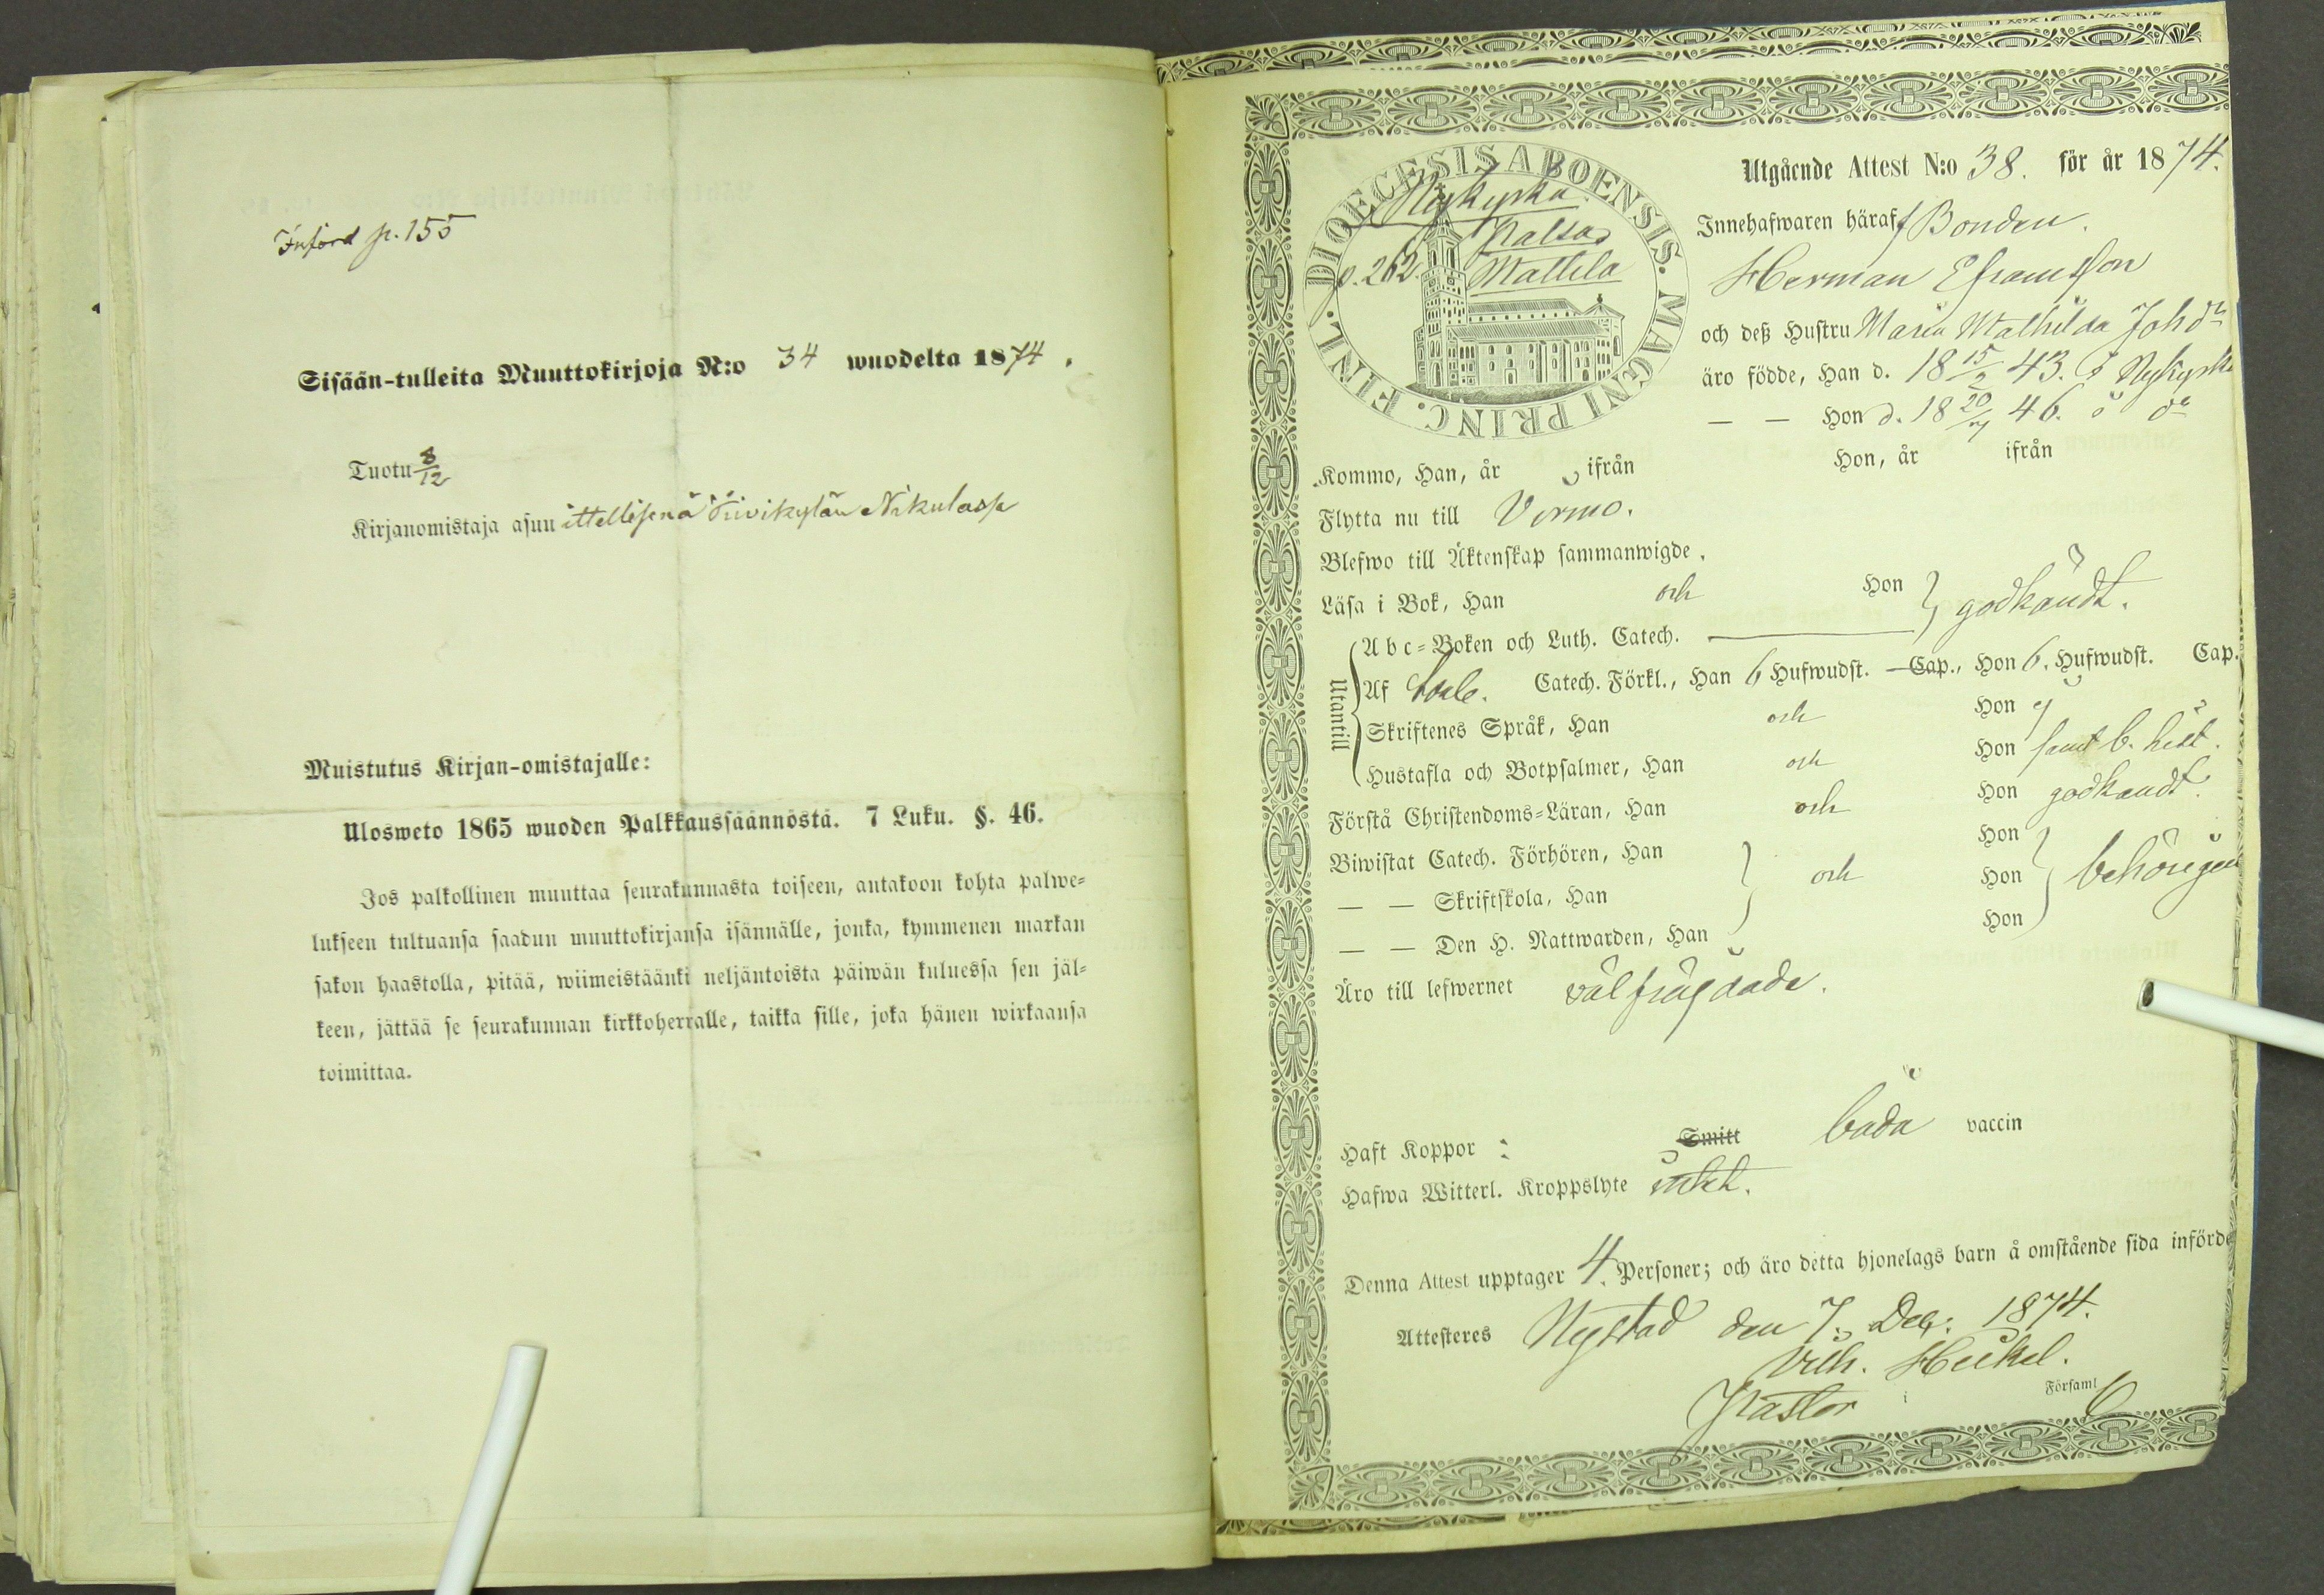 Införd p. 155
Sisään-tulleita Muuttokirjoja N:o 34 wuodelta 1874.
Tuotu 8/12
Kirjanomistaja asuu ittellisenä Nikulassa
Muistutus Kirjan-omistajalle:
Ulosweto 1865 wuoden Palkkaussäännöstä. 7 Luku. §. 46.
Jos palkollinen muuttaa seurakunnasta toiseen, antakoon kohta palwe=
lukseen tultuansa saadun muuttokirjansa isännälle, jonka, kymmenen markan
sakon haastolla, pitää, wiimeistäänki neljäntoista päiwän kuluessa sen jäl=
keen, jättää se seurakunnan kirkkoherralle, taikka sille, joka hänen wirkaansa
toimittaa.
DIOECESIS ABOENSIS. MAGNI PRINC. FINL.
Nykyrka
Kaltas
p. 262. Mattila
Utgående Attest N:o 38. för år 1874.
Innehafwaren häraf Bonden
Herman Efraimsson
och deß Hustru Maria Mathilda Joh dr
äro födde, Han d. 18 15/2 43. i Nykyrka
— — Hon d. 18 20/7 46. i do
Kommo, Han, år ifrån Hon, år ifrån
Flytta nu till Virmo.
Blefwo till Äktenskap sammanwigde.
Läsa i Bok, Han och Hon } godkändt.
Utantill
Abc=Boken och Luth. Catech.
Af Catech. Förkl., Han 6 Hufwudst. Cap., Hon 6. Hufwudst. Cap.
Skriftenes Språk, Han och Hon
Hustafla och Botpsalmer, Han och Hon samt b. hist.
Förstå Christendoms=Läran, Han och Hon godkändt.
Biwistat Catech. Förhören, Han Hon
— — Skriftskola, Han och Hon behörigen
— — Den H. Nattwarden, Han Hon
Äro till lefwernet välfrägdade.
Haft Koppor : Smitt båda vaccin
Hafwa Witterl. Kroppslyte intet.
Denna Attest upptager 4. Personer; och äro detta hjonelags barn å omstående sida införde
Attesteres Nystad den 7. Dec. 1874.
Vilh. Heikel.
Pastor i Församl